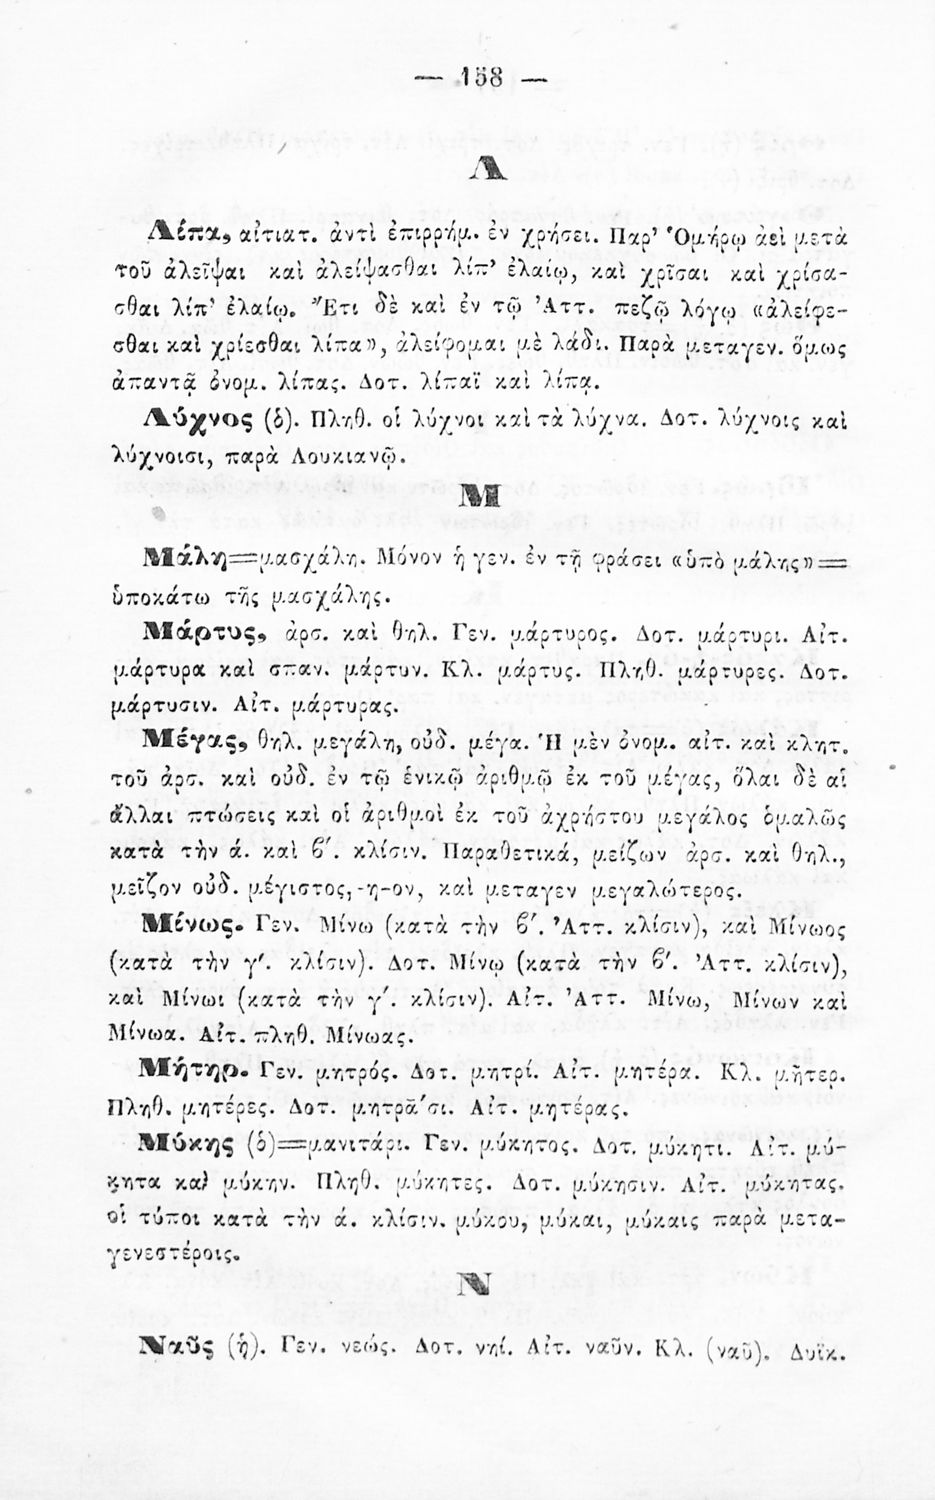 — 158 —
Λ
Λίπα, αἰτιατ. ἀντὶ ἐπιρρήμ. ἐν χρήσει. Παρ’ Ὁμήρῳ ἀεὶ μετὰ
τοῦ ἀλεῖψαι καὶ ἀλείψασθαι λίπ’ ἐλαιῳ, καὶ χρῖσαι καὶ χρίσα-
σθαι λίπ’ ἐλαίῳ. Ἔτι δὲ καὶ ἐν τῷ Ἀττ. πεζῷ λόγῳ «ἀλείφε-
σθαι καὶ χρίεσθαι λίπα», ἀλείφομαι μὲ λάδι. Παρὰ μεταγεν. ὅμως
ἀπαντᾷ ὀνομ. λίπας. Δοτ. λίπαϊ καὶ λίπᾳ.
Λύχνος (ὁ). Πληθ. οἱ λύχνοι καὶ τὰ λύχνα. Δοτ. λύχνοις καὶ
λύχνοισι, παρὰ Λουκιανῷ.
Μ
Μάλη=μασχάλη. Μόνον ἡ γεν. ἐν τῇ φράσει «ὑπὸ μάλης»=
ὑποκάτω τῆς μασχάλης.
Μάρτυς, ἀρσ. καὶ θηλ. Γεν. μάρτυρος. Δοτ. μάρτυρι. Αἰτ.
μάρτυρα καὶ σπαν. μάρτυν. Κλ. μάρτυς. Πληθ. μάρτυρες. Δοτ.
μάρτυσιν. Αἰτ. μάρτυρας.
Μέγας, θηλ. μεγάλη, οὐδ. μέγα. Ἡ μὲν ὀνομ. αἰτ. καὶ κλητ.
τοῦ ἀρσ. καὶ οὐδ. ἐν τῷ ἑνικῷ ἀριθμῷ ἐκ τοῦ μέγας, ὅλαι δὲ αἱ
ἄλλαι πτώσεις καὶ οἱ ἀριθμοὶ ἐκ τοῦ ἀχρήστου μεγάλος ὁμαλῶς
κατὰ τὴν ά. καὶ β΄. κλίσιν. Παραθετικά, μείζων ἀρσ. καὶ θηλ.,
μεῖζον οὐδ. μέγιστος,-η-ον, καὶ μεταγεν μεγαλώτερος.
Μίνως. Γεν. Μίνω (κατὰ τὴν β΄. Ἀττ. κλίσιν), καὶ Μίνωος
(κατὰ τὴν γ΄. κλίσιν). Δοτ. Μίνῳ (κατὰ τὴν β΄. Ἀττ. κλίσιν),
καὶ Μίνωι (κατὰ τὴν γ΄. κλίσιν). Αἰτ. Ἀττ. Μίνω, Μίνων καὶ
Μίνωα. Αἰτ. πληθ. Μίνωας.
Μήτηρ. Γεν. μητρός. Δοτ. μητρί. Αἰτ. μητέρα. Κλ. μῆτερ.
Πληθ. μητέρες. Δοτ. μητρᾰ΄σι. Αἰτ. μητέρας.
Μύκης (ὁ)=μανιτάρι. Γεν. μύκητος. Δοτ. μύκητι. Αἰτ. μύ-
κητα καὶ μύκην. Πληθ. μύκητες. Δοτ. μύκησιν. Αἰτ. μύκητας.
οἱ τύποι κατὰ τὴν ά. κλίσιν. μύκου, μύκαι, μύκαις παρὰ μετα-
γενεστέροις.
Ν
Ναῦς (ἡ). Γεν. νεώς. Δοτ. νηί. Αἰτ. ναῦν. Κλ. (ναῦ). Δυϊκ.